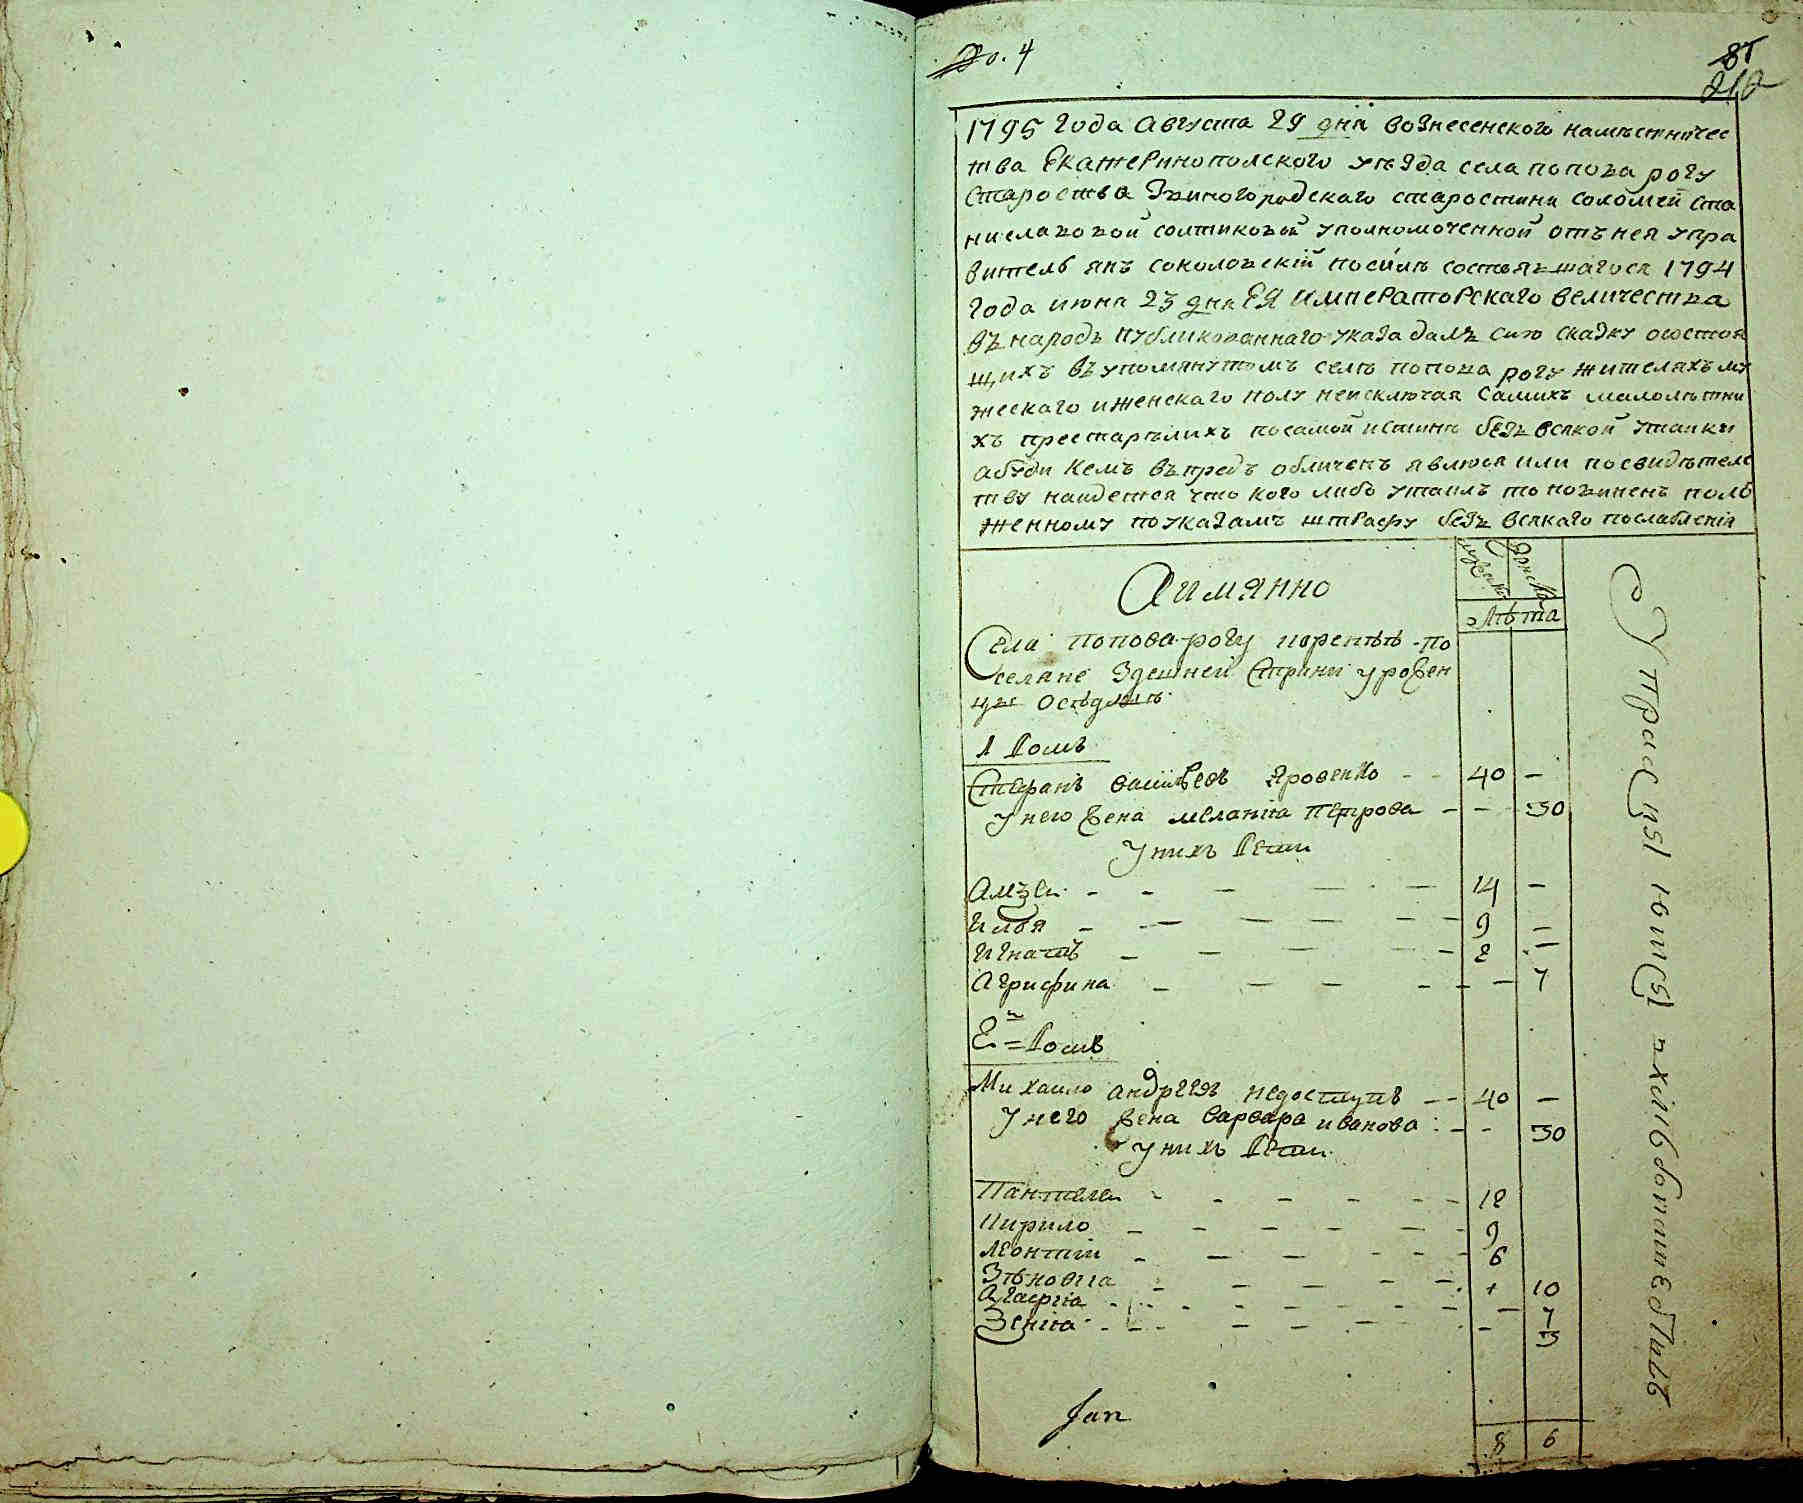 До. 4
87
212
1795 года августа 29 дня вознесенского намѣстничес
тва Екатеринополского уѣзда села попова рогу
староства Звиногородскаго старостини соломеи ста
ниславовой солтиковой уполномоченной отъ нея упра
витель янъ соколовскій посилѣ состоявшагося 1794
года июня 23 дня ЕЯ императорскаго величества
въ народъ публикованнаго указа далъ сию сказку осостоя
щихъ въ упомянутомъ селѣ попова рогу жителяхъ му
жескаго и женскаго полу неисключая самихъ малолѣтни
хъ престарѣлихъ посамой истинѣ безъ всякой утайки
абуди кемъ въпредъ обличенъ явлюся или посвидѣтелс
тву найдется что кого либо утаилъ то повиненъ поло
женному поуказамъ штрафу безъ всякаго послабленія
Аимянно
мужск женска
лѣта
Села попова рогу
селяне здешней страни уровен
1 Домъ
Стефанъ василіевъ Яровенко - - 40 -
у него жена меланія петрова - - 30
у нихъ дети
14 -
Илья - - - - - - 9 -
Игнатъ - - - - - 2 -
Агрифина - - - - - - 7
2 = Домъ
Михаило андреевъ недоступъ - - 40 -
у него жена варвара иванова - - 30
у нихъ дети
Пантелеи - - - - - - 12
Кирило - - - - - - 9
Леонтіи - - - - - - 6
Зѣновія - - - - - 10
Агафія - - - - - - 7
Зенія - - - - - - 3
Jan
8 6